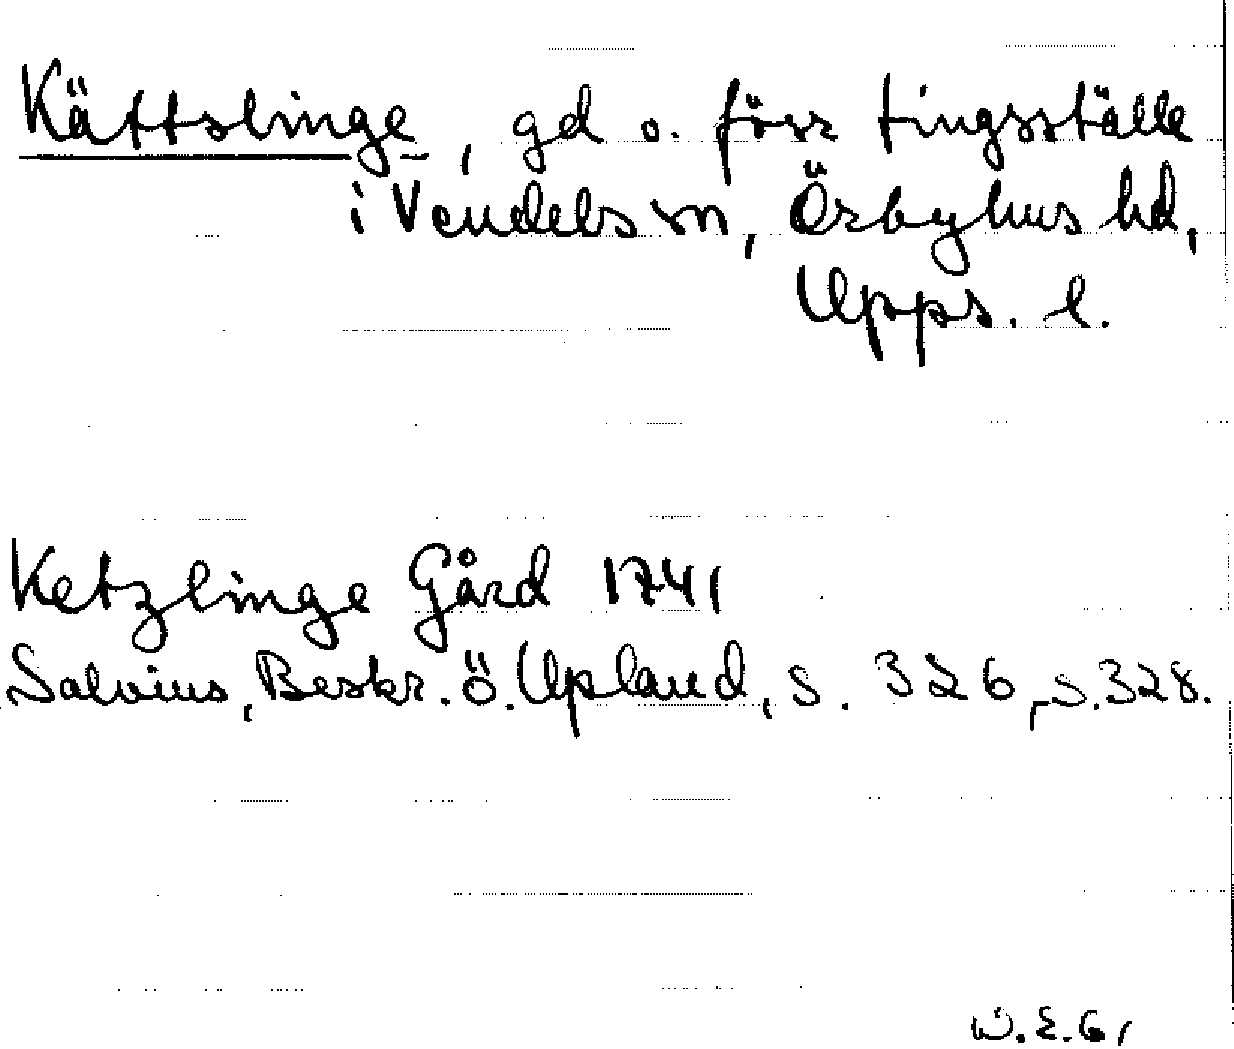 Kättslinge, gd o. förr tingsställe
i Vendels sn, Örbyhus hd,
Upps. l.
Ketzlinge Gård 1741
Salvius, Beskr. ö. Upland, s. 326, s. 328.